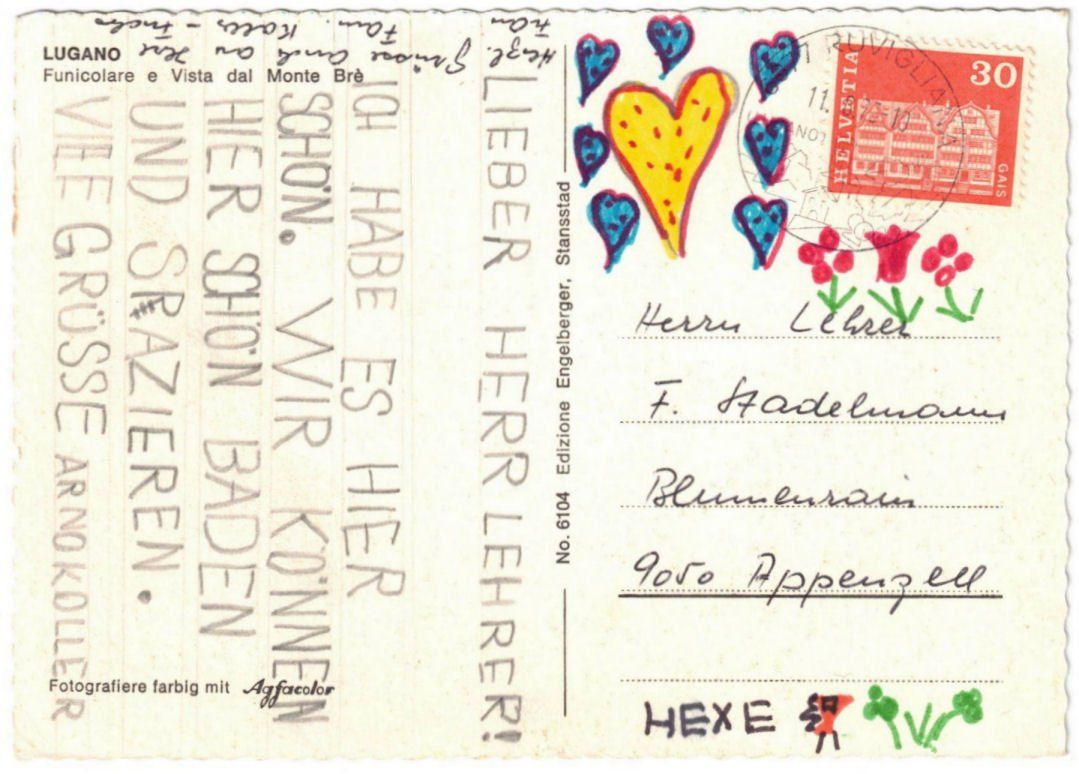 LUGANO
Funicolare e Vista dal Monte Brè
LIEBER HERR LEHRER!
ICH HABE ES HIER
SCHÖN. WIR KÖNNEN
HIER SCHÖN BADEN
UND SPAZIEREN.
VIELE GRÜSSE ARNO KOLLER
Herzl. Grüsse auch an Ihre
Frau Fam. Koller
Fotografiere farbig mit Agfacolor
No. 6104 Edizione Engelberger, Stansstad
RUVIGLIANA
11.
-10
HELVETIA
30
GAIS
Herrn Lehrer
F. Stadelmann
Blumenrain
9050 Appenzell
HEXE